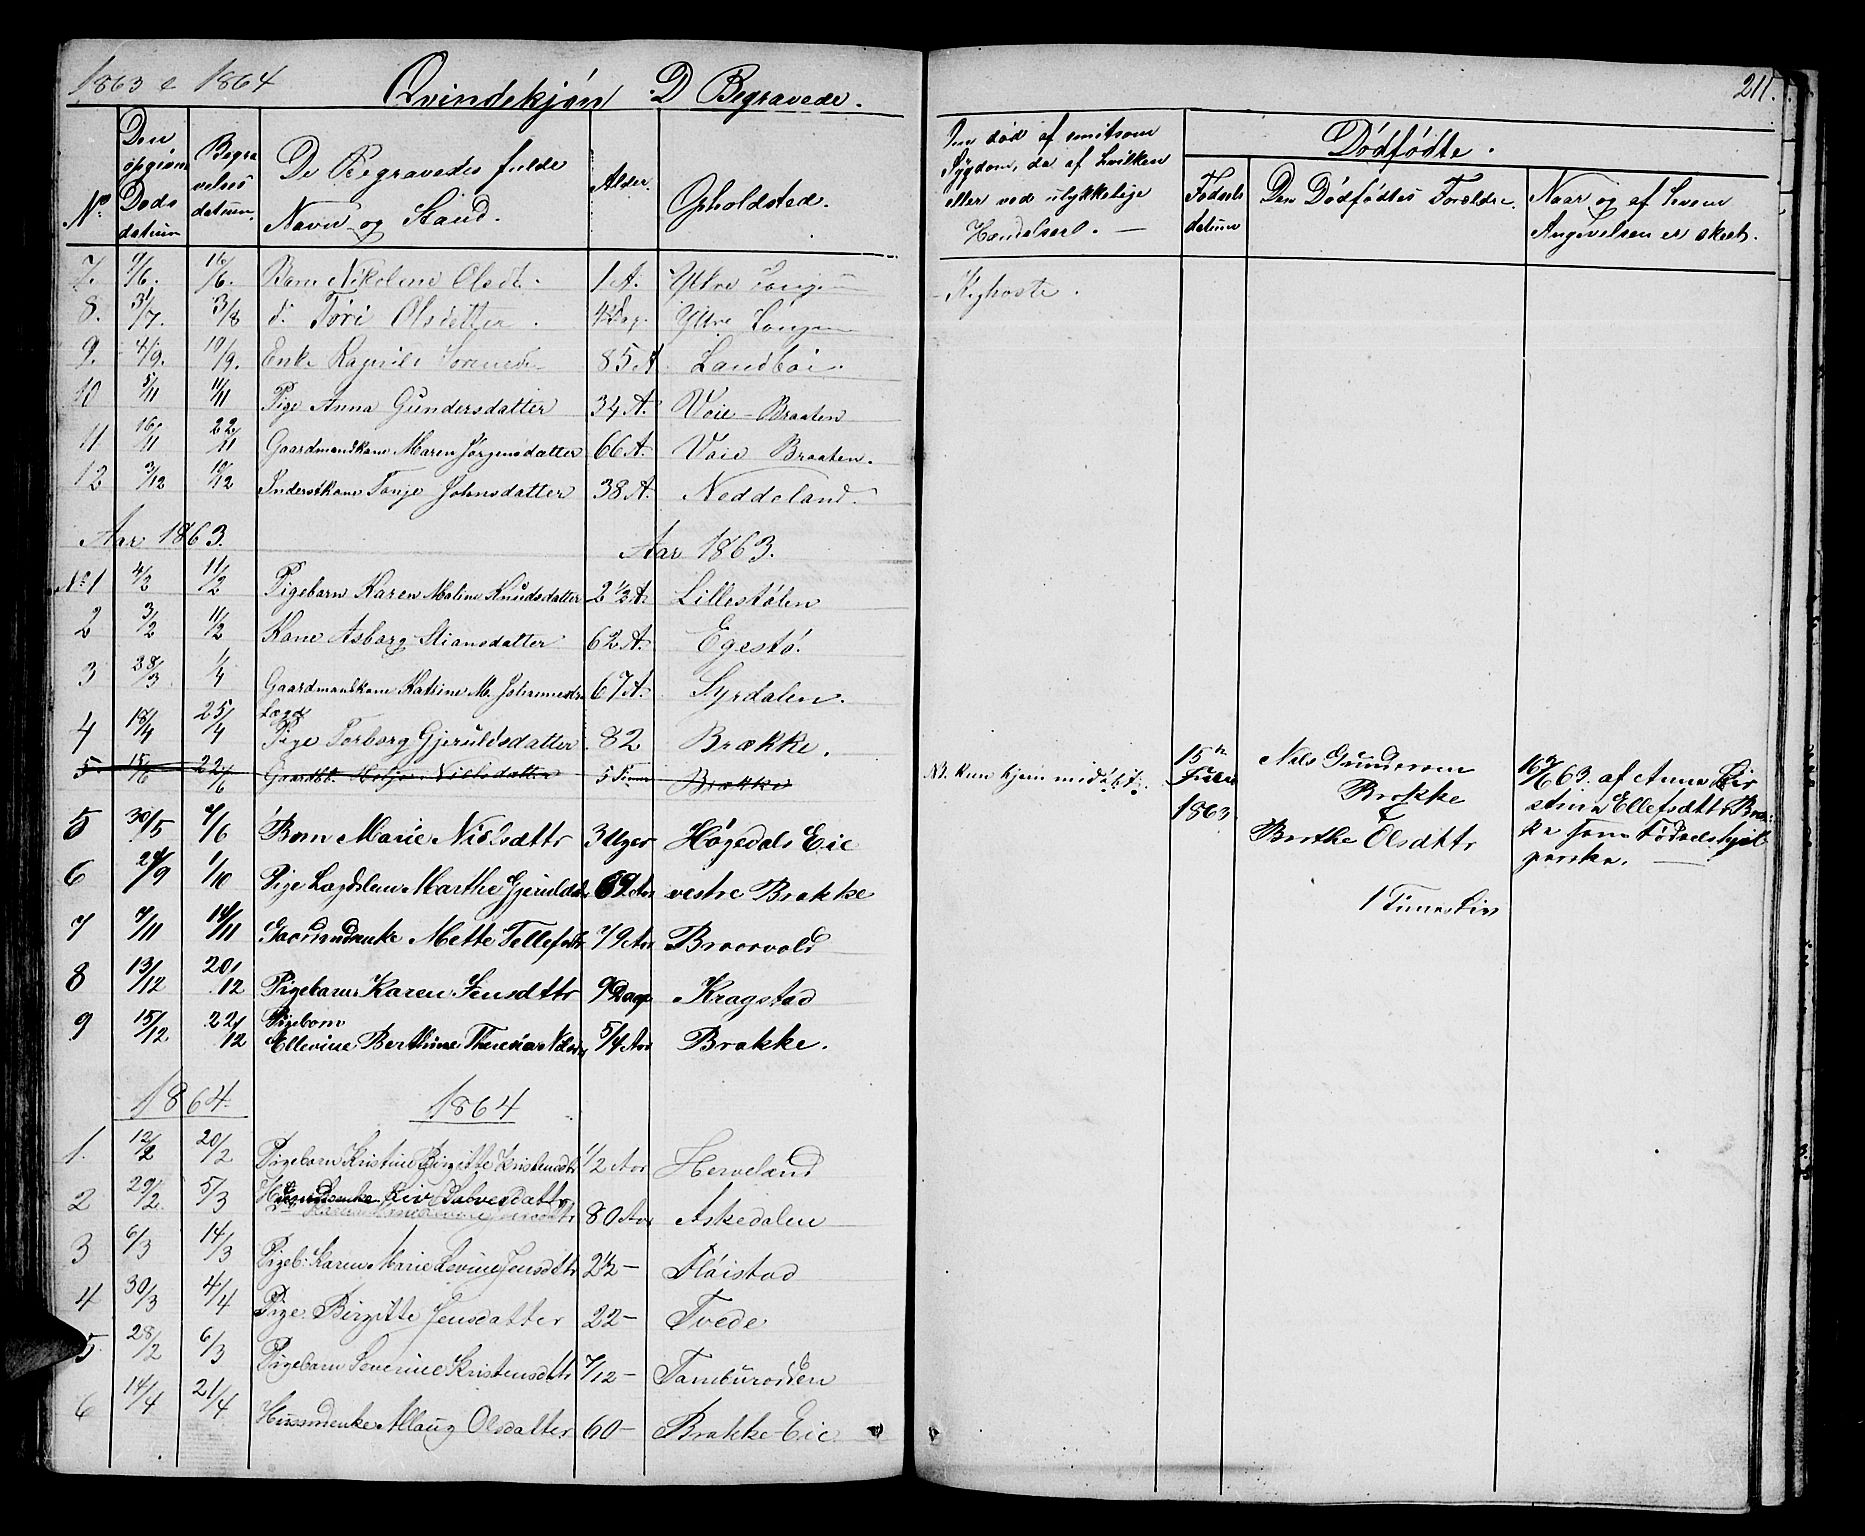 1863 & 1864 Qvindekjøn D Begravede. 211.
No. Den opgivne Døds datum Begravelses datum. De Begravedes fulde Navn og Stand. Alder. Opholdsted. Om død af smitsom Sygdom, da af hvilken eller ved ulykkelige Hændelser. — Dødfødte. Fødsels datum Den Dødfødtes Forældre. Naar og af hvem Angivelsen er skeet.
7. 9/6. 16/6. Barn Nikoline Olsdt. 1 A. Ytre - Kighoste.
8. 31/7. 3/8 d. Tóri Olsdatter. Ytre
9. 4/9. 10/9. Enke 85 A. Landbói.
10 5/11 11/11 Pige Anna Gundersdatter 34 A. Voie - Braaten
11 16/11 22/11 Gaardmandskone Maren Jórgensdatter 66 A. Voie Braaten.
12 3/12 10/12 Inderstkone Tonje Johnsdatter 38 A. Neddeland.
Aar 1863. Aar 1863.
No. 1 4/2 11/2 Pigebarn Karen Malene Knudsdatter 2 1/2 A. Lillestólen
2 3/2 11/2 Kone Asborg Stiansdatter 62 A. Egestó.
3 28/3 1/4 Gaardmandskone Katrine M. Johannesdr 67 A. Syrdalen.
Lægd
4 18/4 25/4 Pige Torborg Gjeruldsdatter 82 Brække.
5. 15/6 22/6 Gaardbr. Nielsdatter 5 Timer Brække
15n 1863 Nels Gundersen Brokke Berthe Olsdttr 16/6 63. af Anne Kirstine Ellefsdttr Brokke som Fødselshjelperske. —
1 Times Liv
5 30/5 7/6 Barn Marie Nielsdttr 3 Uger Høgedals Eie
6 24/9 1/10 Pige Lægdslem Marthe Gjerulds 69 Aar vestre Brokke
7 7/11 14/11 Gaardmandsenke Mette Tellefsdtr 79 Aar Braarvold
8 13/12 20/12 Pigebarn Karen Jensdttr 9 Dage Kragstad
9 15/12 22/12 Pigebarn Ellevine Berthine Theresia 5/4 Aar Brokke.
1864. 1864
1. 12/2 20/2 Pigebarn Kristine Birgitte Kristensdtr 1/2 Aar Herveland
2 29/2 5/3 Liv Salvesdattr 80 Aar Askedalen
3 6/3 14/3 Pigeb: Karen Marie Lovise Jensdttr 2 1/2 — Flóistad
4 30/3 4/4 Pige Birgitte Jensdatter 22 — Tvede
5 28/2 6/3 Pigebarn Severine Kristensdttr 7/12 — Tambúrodden
6 14/4 21/4 Husmdenke Allaug Olsdatter 60 — Brokke-Eie.